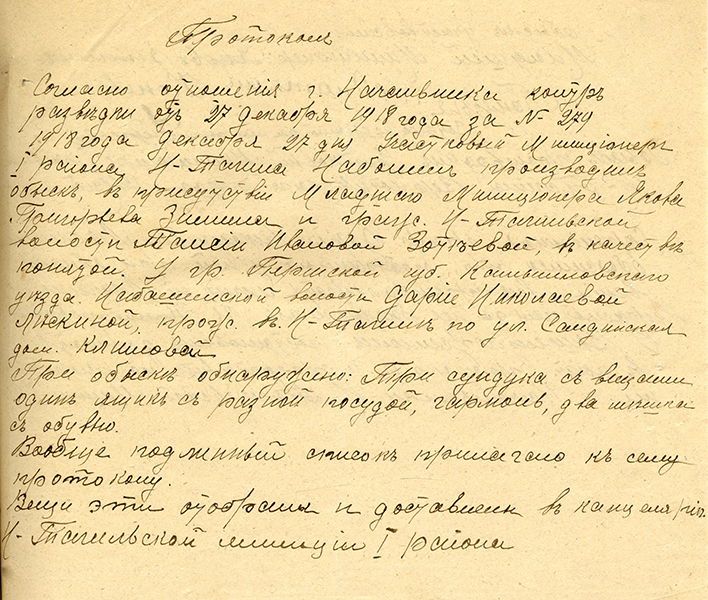 Протоколъ
Согласно отношенія г. Начальника контръ
развѣдки отъ 27 декабря 1918 года за № 279
1918 года декабря 27 дня Участковый Милиціонеръ
I района Н-Тагила производилъ
обыскъ, въ присутствіи Младшаго Милиціонера Якова
Григорьева Зимина и гражд. Н-Тагильской
волости Таисіи Ивановой Зотѣевой, въ качествѣ
понятой. У гр. Пермской губ. Камышловскаго
уѣзда. волости Даріе Николаевой
прож. въ Н-Тагилѣ по ул. Салдинская
дом. Климовой
При обыскѣ обнаружено: Три сундука съ вещами
одинъ ящикъ съ разной посудой, гармонь, два мѣшка
съ обувью.
Вообще подлинный списокъ прилагаю къ сему
протоколу.
Вещи эти отобраны и доставлены въ канцелярію
Н-Тагильской милиціи I района